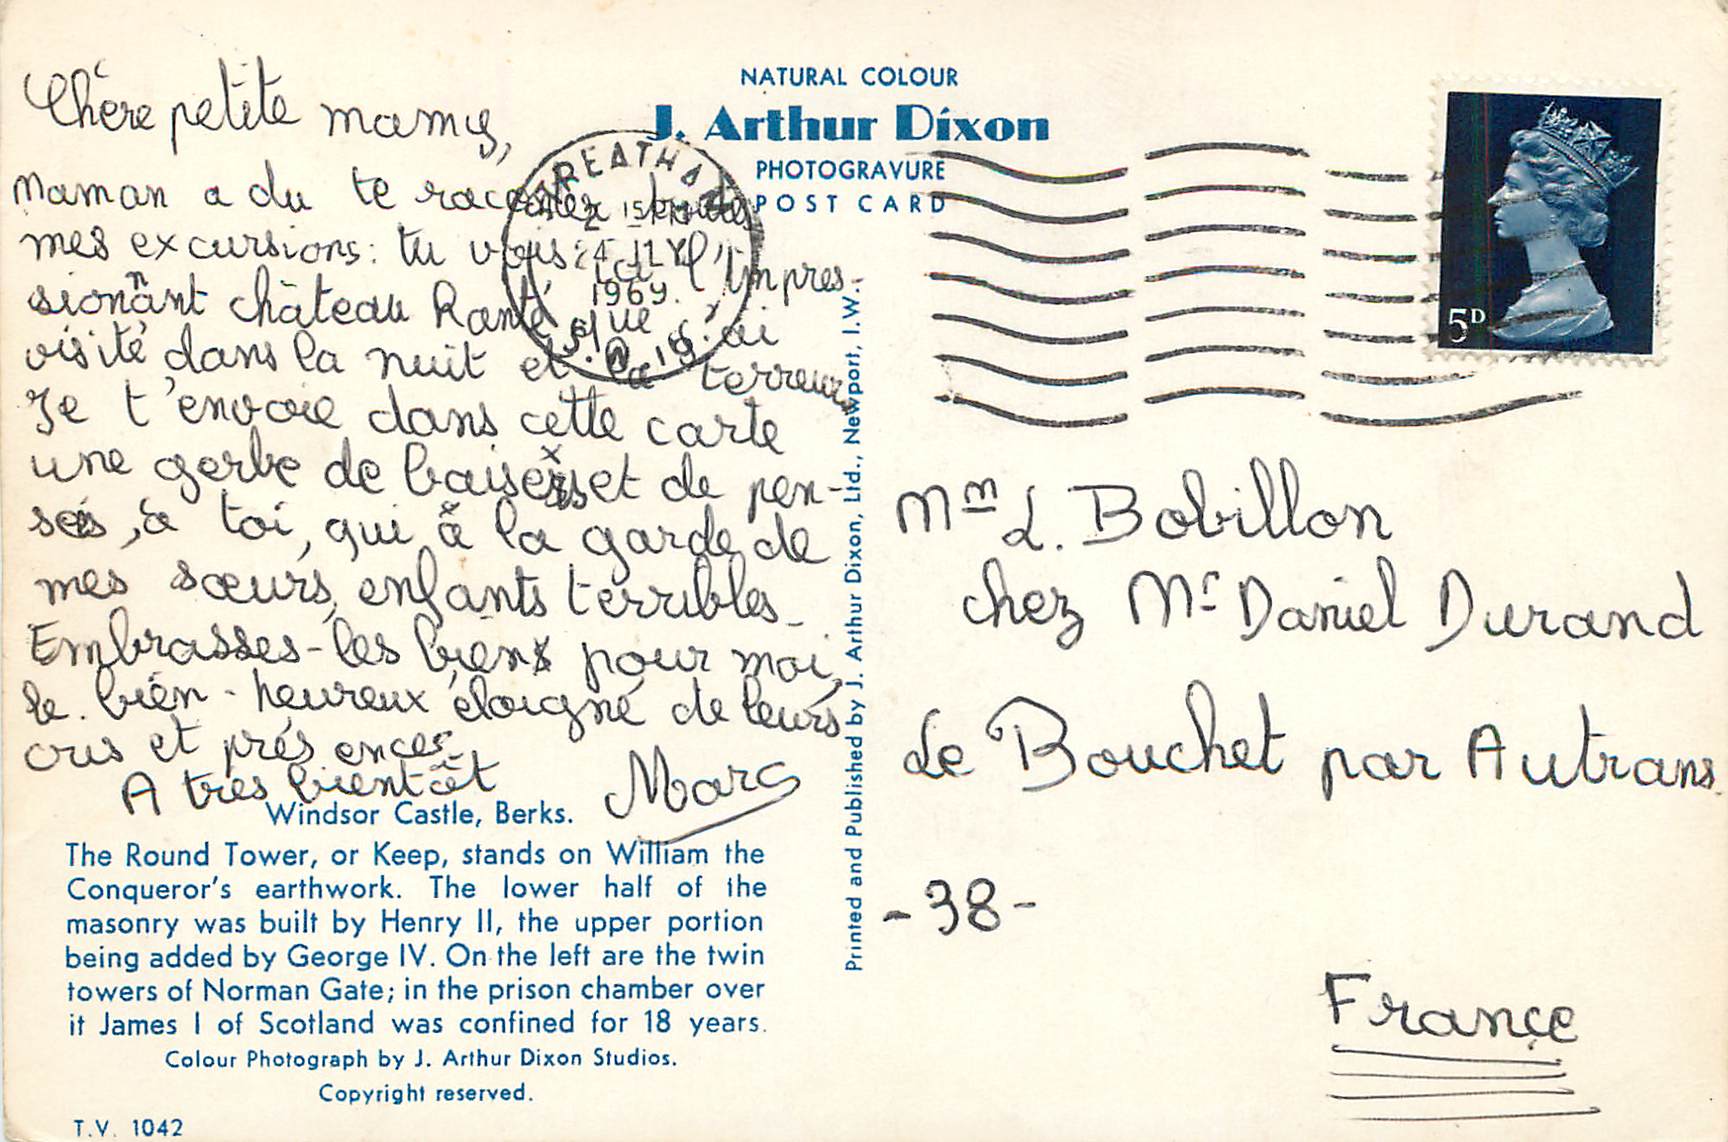 Chère petite mamy,
Maman a du te raconter toutes
mes excursions: tu vois ici l'impres-
sionnant château hanté que j'ai
visité dans la nuit et la terreur
Je t'envoie dans cette carte
une gerbe de baisers et de pen-
seés, à toi, qui à la garde de
mes sœurs, enfants terribles_
Embrasses-les bien pour moi,
le bien-heureux éloigné de leurs
cris et présences
A très bientôt Marc
Windsor Castle, Berks.
The Round Tower, or Keep, stands on William the
Conqueror's earthwork. The lower half of the
masonry was built by Henry II, the upper portion
being added by George IV. On the left are the twin
towers of Norman Gate; in the prison chamber over
it James I of Scotland was confined for 18 years.
Colour Photograph by J. Arthur Dixon Studios.
Copyright reserved.
T.V. 1042
NATURAL COLOUR
J. Arthur Dixon
PHOTOGRAVURE
POST CARD
Printed and Published by J. Arthur Dixon, Ltd., Newport, I.W.
STREATHAM
2 15 PM
24 JLY
1969
S.W.16.
5D
Mm L. Bobillon
chez Mr Daniel Durand
Le Bouchet par Autrans
-38-
France